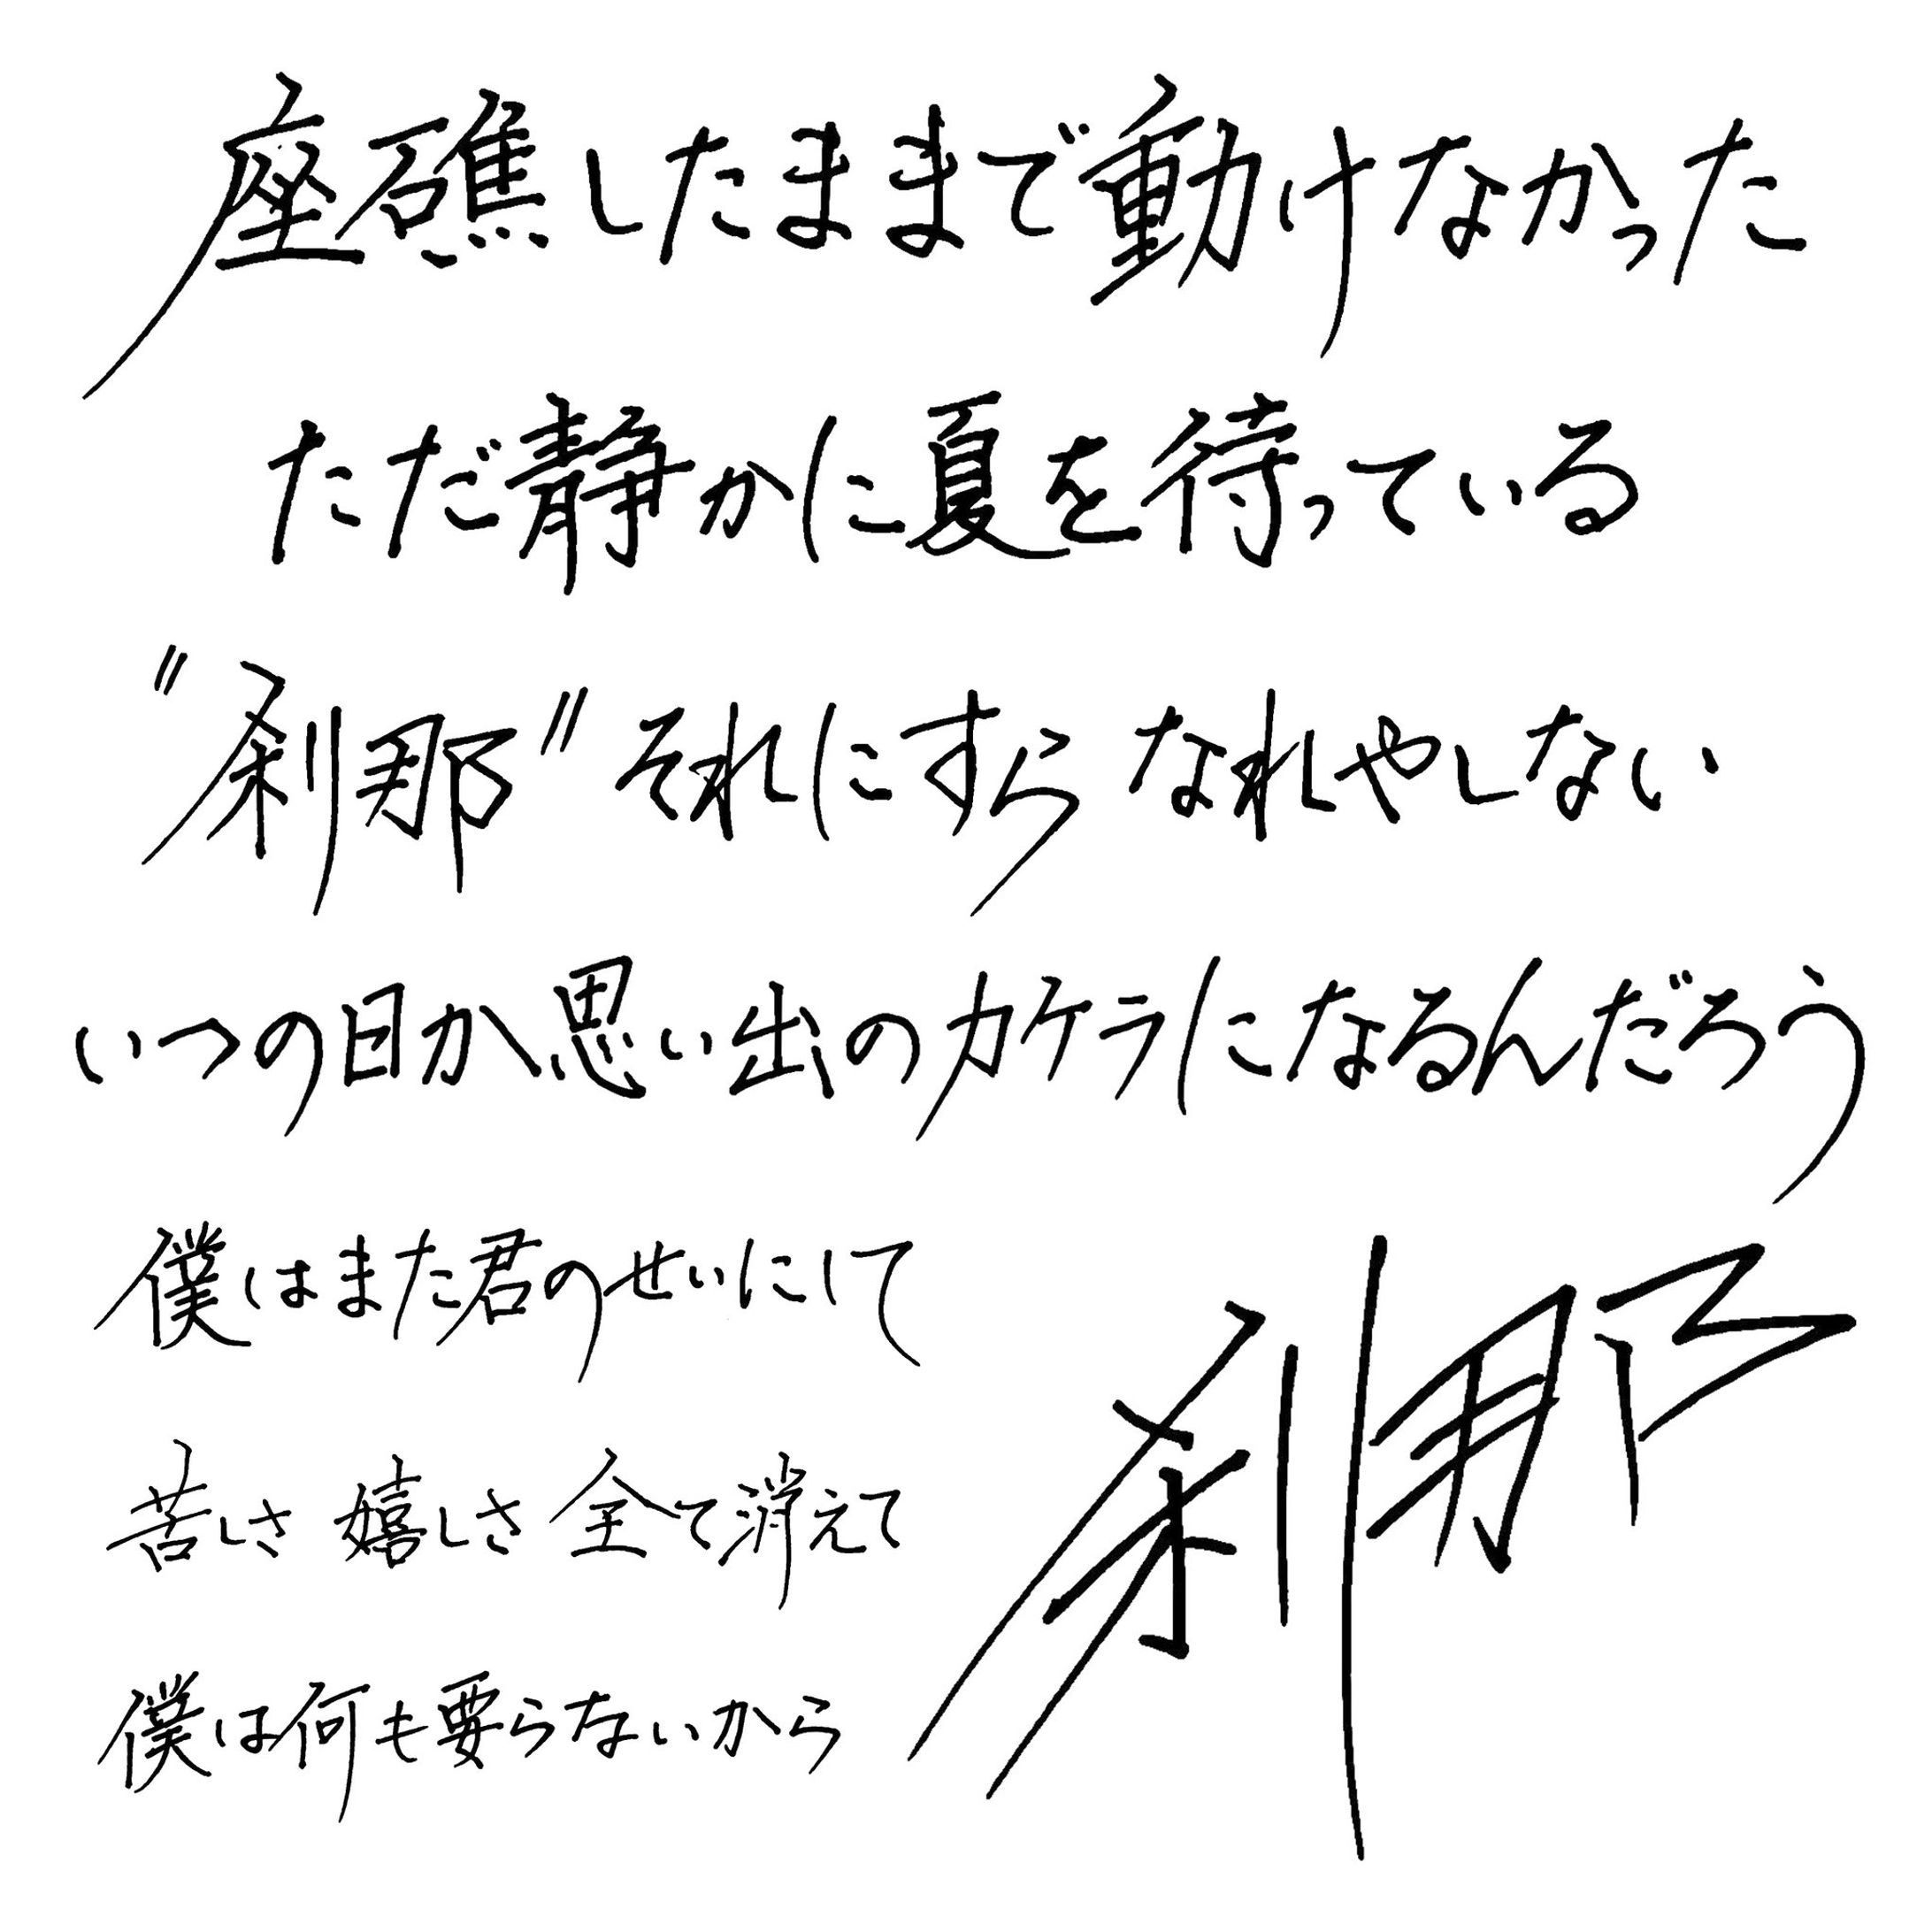 座礁したままで動けなかった
ただ静かに夏を待っている
"刹那"それにすら なれやしない
いつの日か思い出のカケラになるんだろう
僕はまた君のせいにして
苦しさ 嬉しさ 全て消えて
僕は何も要らないから
刹那